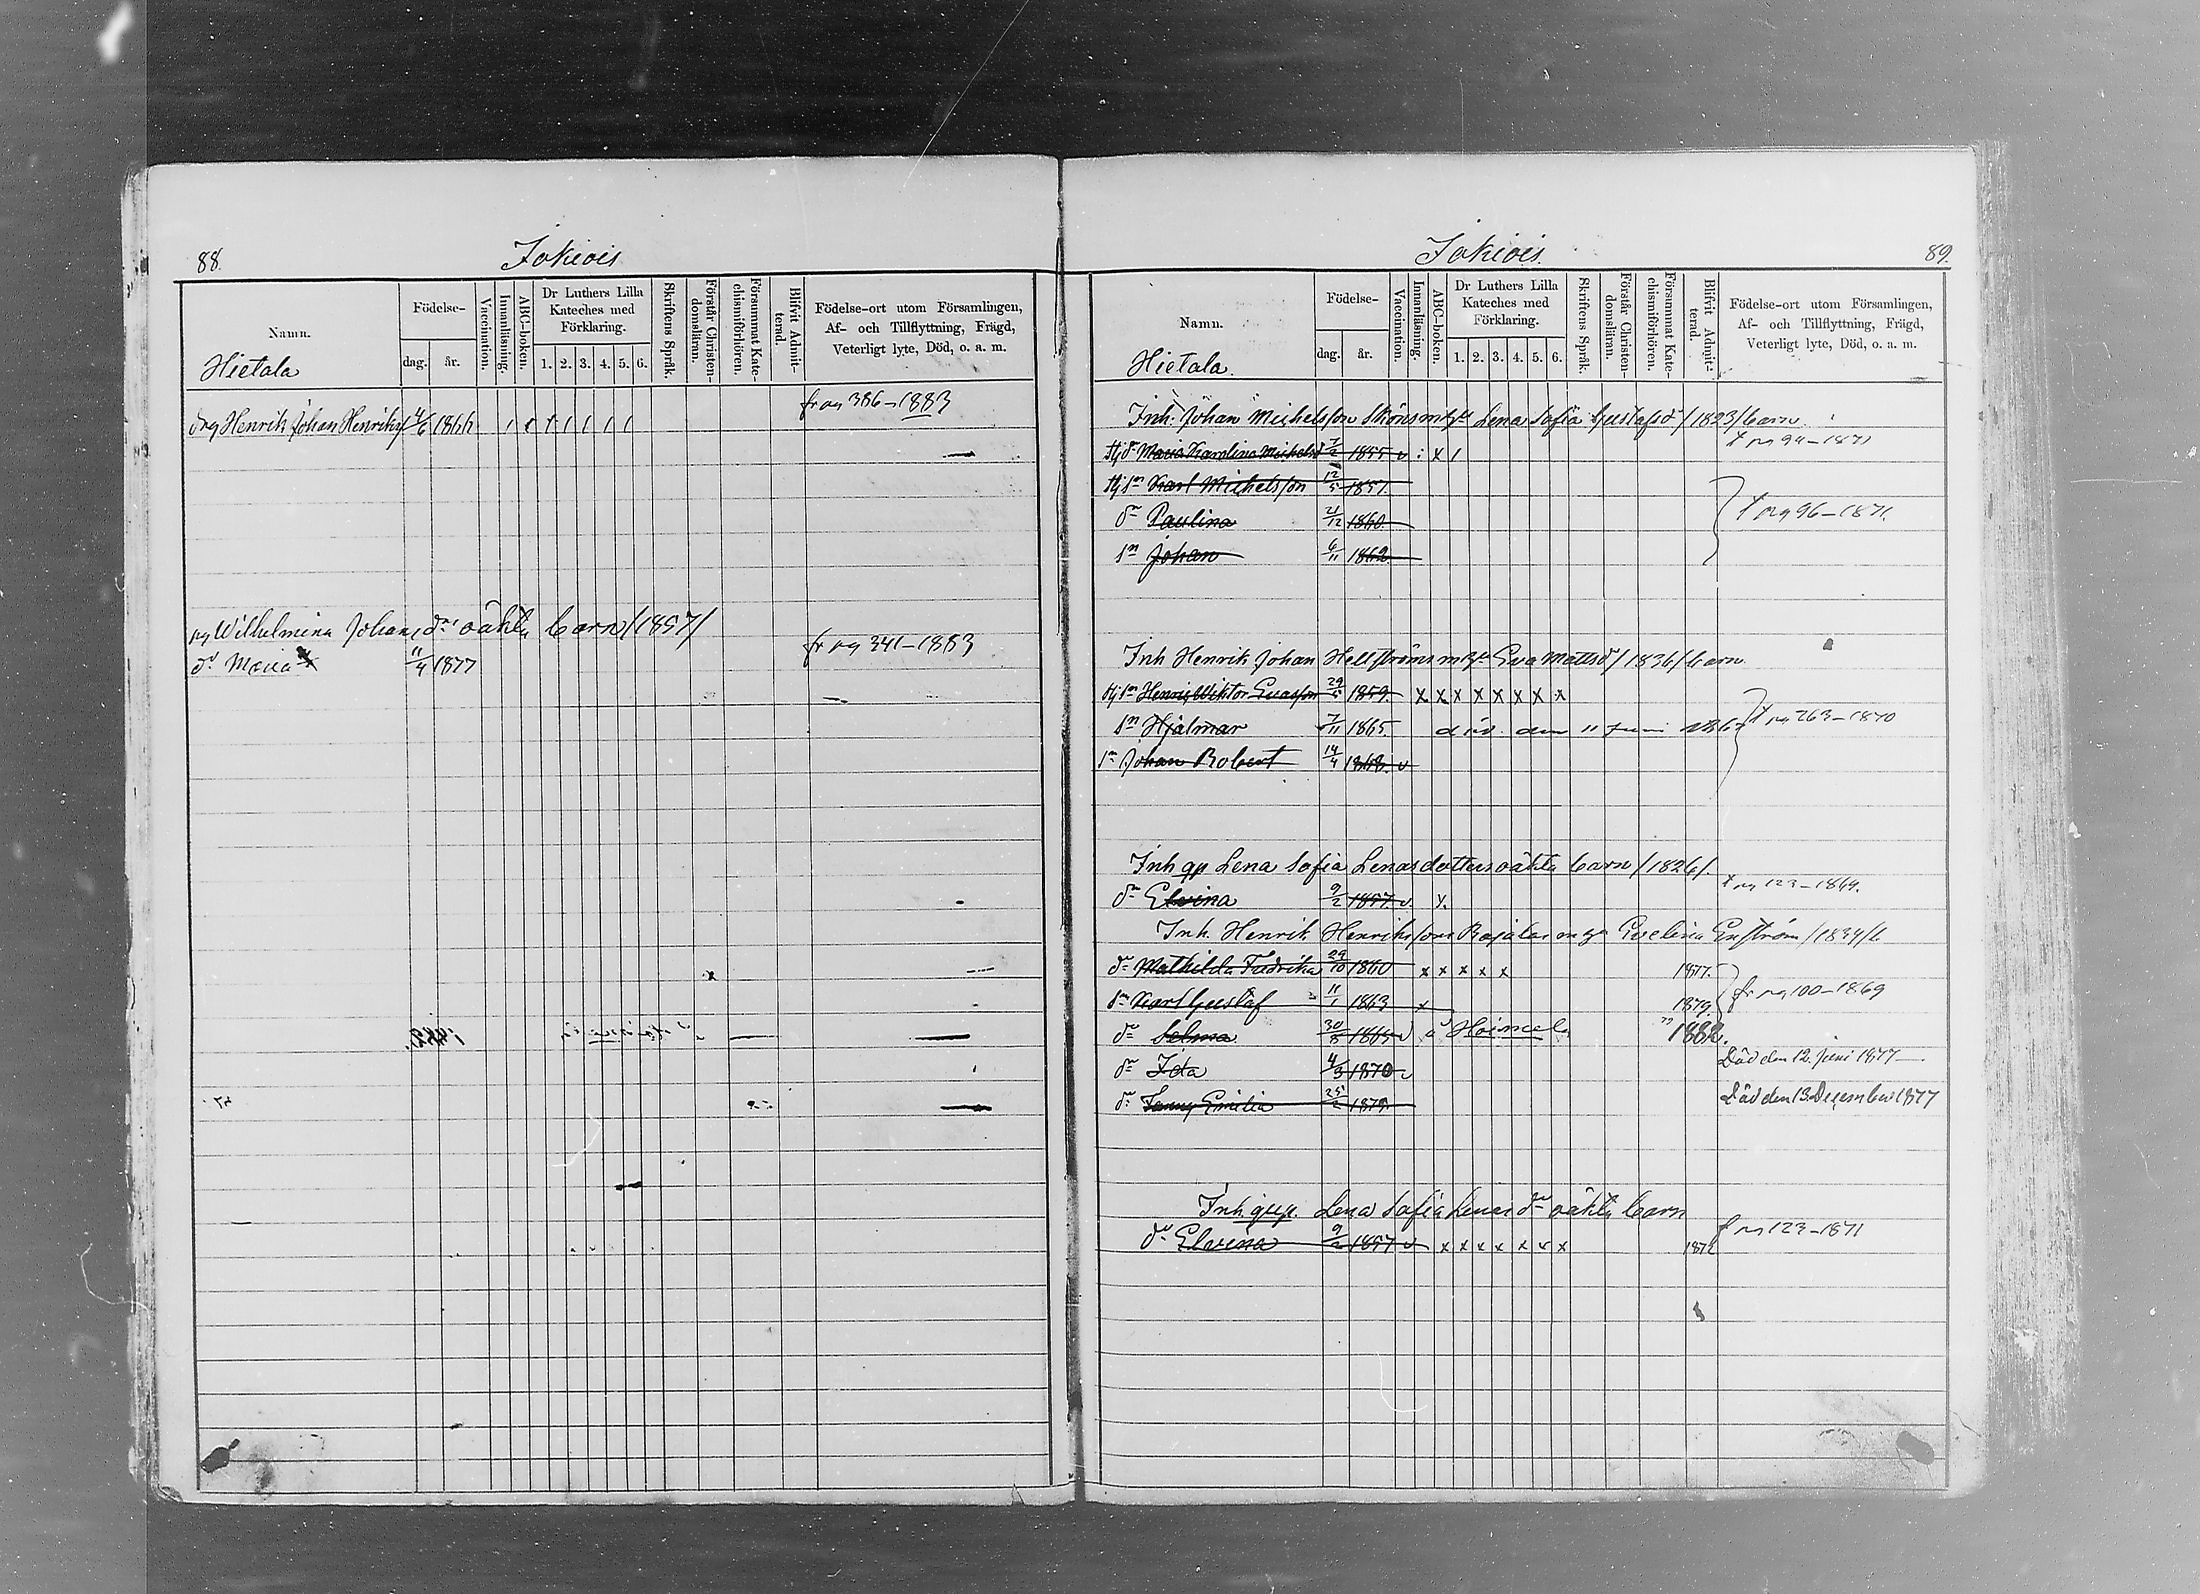 88.
Jokiois
Namn.
Hietala
Födelse-
dag. år.
Vaccination.
Innanläsning.
ABC-boken.
Dr Luthers Lilla
Kateches med
Förklaring.
1. 2. 3. 4. 5. 6.
Skriftens Språk.
Förstår Christen-
domsläran.
Försummat Kate-
chismiförhören.
Blifvit Admit-
terad.
Födelse-ort utom Församlingen,
Af- och Tillflyttning, Frägd,
Veterligt lyte, Död, o. a. m.
fr pg 386-1883
Henrik Johan Henriks 4/6 1866
pg Wilhelmina Johans drs oäkta barn /1857/
fr pg 341-1883
dr Maria 11/4 1877
Jokiois.
89.
Namn.
Hietala.
Födelse-
dag. år.
Vaccination.
Innanläsning.
ABC-boken.
Dr Luthers Lilla
Kateches med
Förklaring.
1. 2. 3. 4. 5. 6.
Skriftens Språk.
Förstår Christen-
domsläran.
Försummat Kate-
chismiförhören.
Blifvit Admit-
terad.
Födelse-ort utom Församlingen,
Af- och Tillflyttning, Frägd,
Veterligt lyte, Död, o. a. m.
Inh. Johan Michelsson Lena Sofia Gustafsd /1823/ barn
t pg 94-1871
Maria Karolina Michelsd 7/2 1855 v x /
Karl Michelsson 12/5 1857.
dr Paulina 21/12 1860.
t pg 96-1871.
sn Johan 6/11 1862
Inh Henrik Johan Hellströms Eva Mattsd /1836/ barn
Henrik Wiktor Evasson 29/5 1859. x x x x x x x x
sn Hjalmar 7/11 1865. död den 11 Juni
t pg 263-1870
sn Johan Robert 14/4 1868. v
Inh qp Lena Sofia Lenasdotters oäkta barn /1826/.
t pg 123-1869.
dr Elvina 9/2 1857 v x.
Inh. Henrik Henrikssons Evelina Enström /1834/ b
dr Mathilda Fredrika 29/10 1860 x x x x x 1877.
sn Karl Gustaf 11/1 1863 x 1879.
fr pg 100-1869
dr Selma 1865 v 1882.
dr Ida 4/3 1870 v
Död den 12. Juni 1877
dr Fanny Emilia 25/2
Död den 13 December 1877
Inh. qvp. Lena Sofia Lenas dr oäkta barn
f pg 123-1871
dr Elvina 9/2 1857 v x x x x x x x